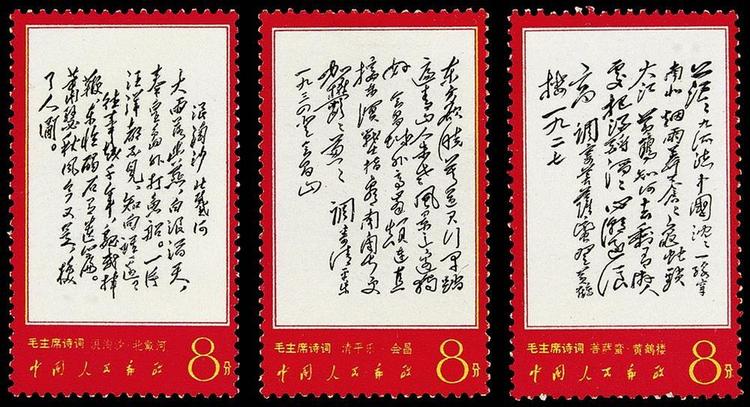 浪淘沙 北戴河
大雨落幽燕,白浪滔天,
秦皇岛外打鱼船。一片
汪洋都不见,知向谁边?
往事越千年,魏武挥
鞭,东临碣石有遗篇。
萧瑟秋风今又是,换
了人间。
毛主席诗词 浪淘沙·北戴河
中国人民邮政 8分
东方欲晓 莫道君行早 踏
遍青山人未老 风景这边独
好 会昌城外高峰 颠连直
接东溟 战士指看南粤 更
加郁々葱々 调寄清平乐
一九三四 登会昌山
毛主席诗词 清平乐·会昌
中国人民邮政 8分
茫々九派流中国 沉々一线穿
南北 烟雨莽苍々 龟蛇锁
大江 黄鹤知何去 剩有游人
处 把酒酹滔々 心潮逐浪
高 调寄菩萨蛮 登黄鹤
楼 一九二七
毛主席诗词 菩萨蛮·黄鹤楼
中国人民邮政 8分